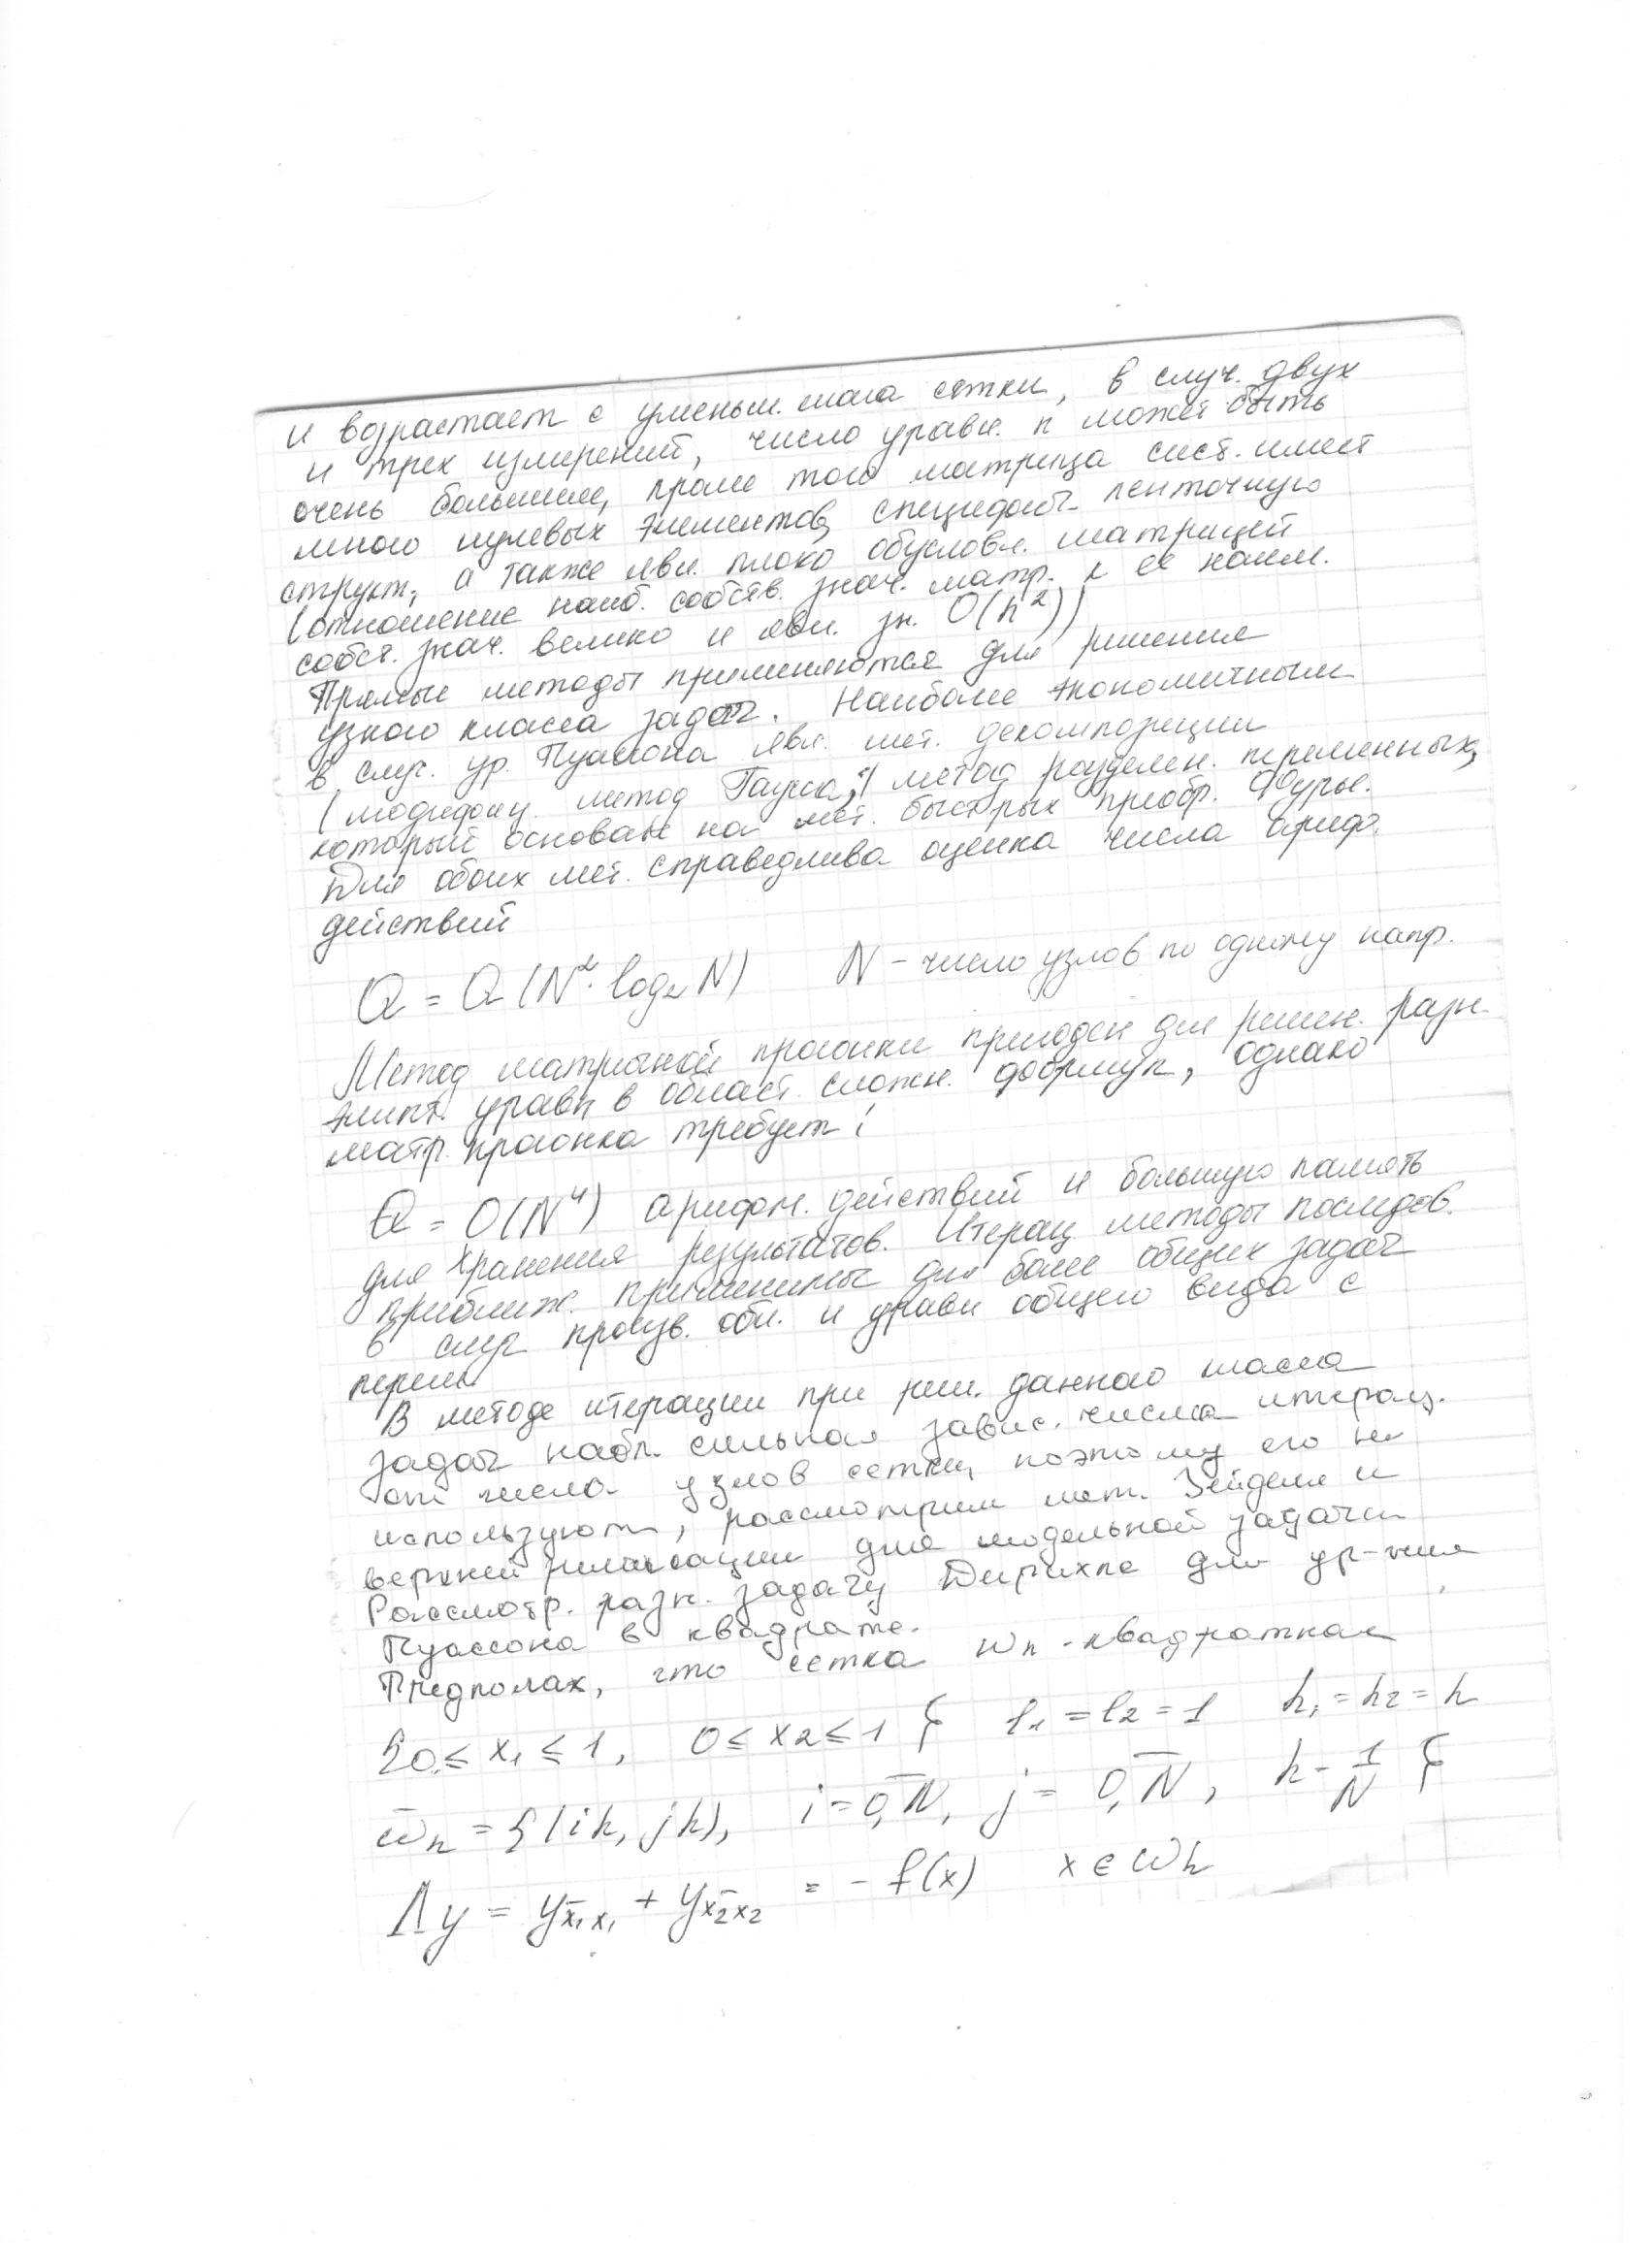 и возрастает с уменьш. шага сетки, в случ. двух
и трех измерений, число уравн. n может быть
очень большим, кроме того матрица сист. имеет
много нулевых элементов, специфич. ленточную
структ., а также явл. плохо обусловл. матрицей
(отношение наиб. собств. знач. матр. к ее наим.
собст. знач. велико и явл. зн. O(h²))
Прямые методы применяются для решения
узкого класса задач. Наиболее экономичным
в случ. ур. Пуассона явл. мет. декомпозиции
(модифиц. метод Гаусса;) метод разделен. переменных,
который основан на мет. быстрых преобр. Фурье.
Для обоих мет. справедлива оценка числа арифм.
действий
Q = Q (N² · log₂ N) N – число узлов по одному напр.
Метод матричной прогонки пригоден для решен. разн.
элипт. уравн в област. сложн. формул, однако
матр. прогонка требует:
Q = O(N⁴) арифм. действий и большую память
для хранения результатов. Итерац. методы последов.
приближ. применимы для более общих задач
в случ произв. обл. и уравн общего вида с
перем.
В методе итерации при реш. данного класса
задач набл. сильная завис. числа итерац.
от числа узлов сетки, поэтому его не
используют, рассмотрим мет. Зейделя и
верхней релаксации для модельной задачи
Рассмотр. разн. задачу Дирихле для ур-ния
Пуассона в квадрате.
Предполах, что сетка ωh - квадратная
{0 ≤ x₁ ≤ 1, 0 ≤ x₂ ≤ 1} l₁ = l₂ = 1 h₁ = h₂ = h
ω̄h = {(ih, jh), i = 0,N̄, j = 0,N̄, h = 1/N}
Λy = y x̄₁x₁ + y x̄₂x₂ = - f(x) x ∈ ωh